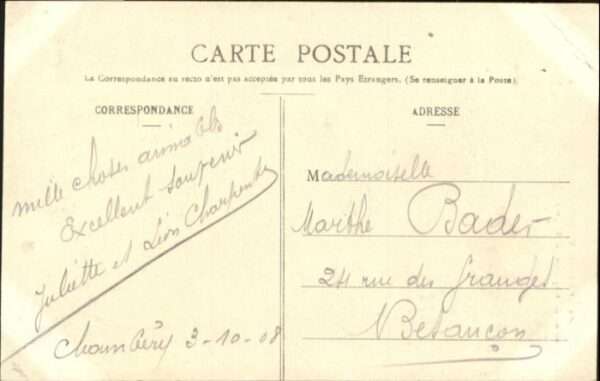 CARTE POSTALE
La Correspondance au recto n'est pas acceptée par tous les Pays Etrangers. (Se renseigner à la Poste).
CORRESPONDANCE
mille choses aimables
Excellent souvenir
Juliette et Léon Charpentier
Chambéry 3-10-08
ADRESSE
Mademoiselle
Marthe Bader
24 rue des Granges
Besançon